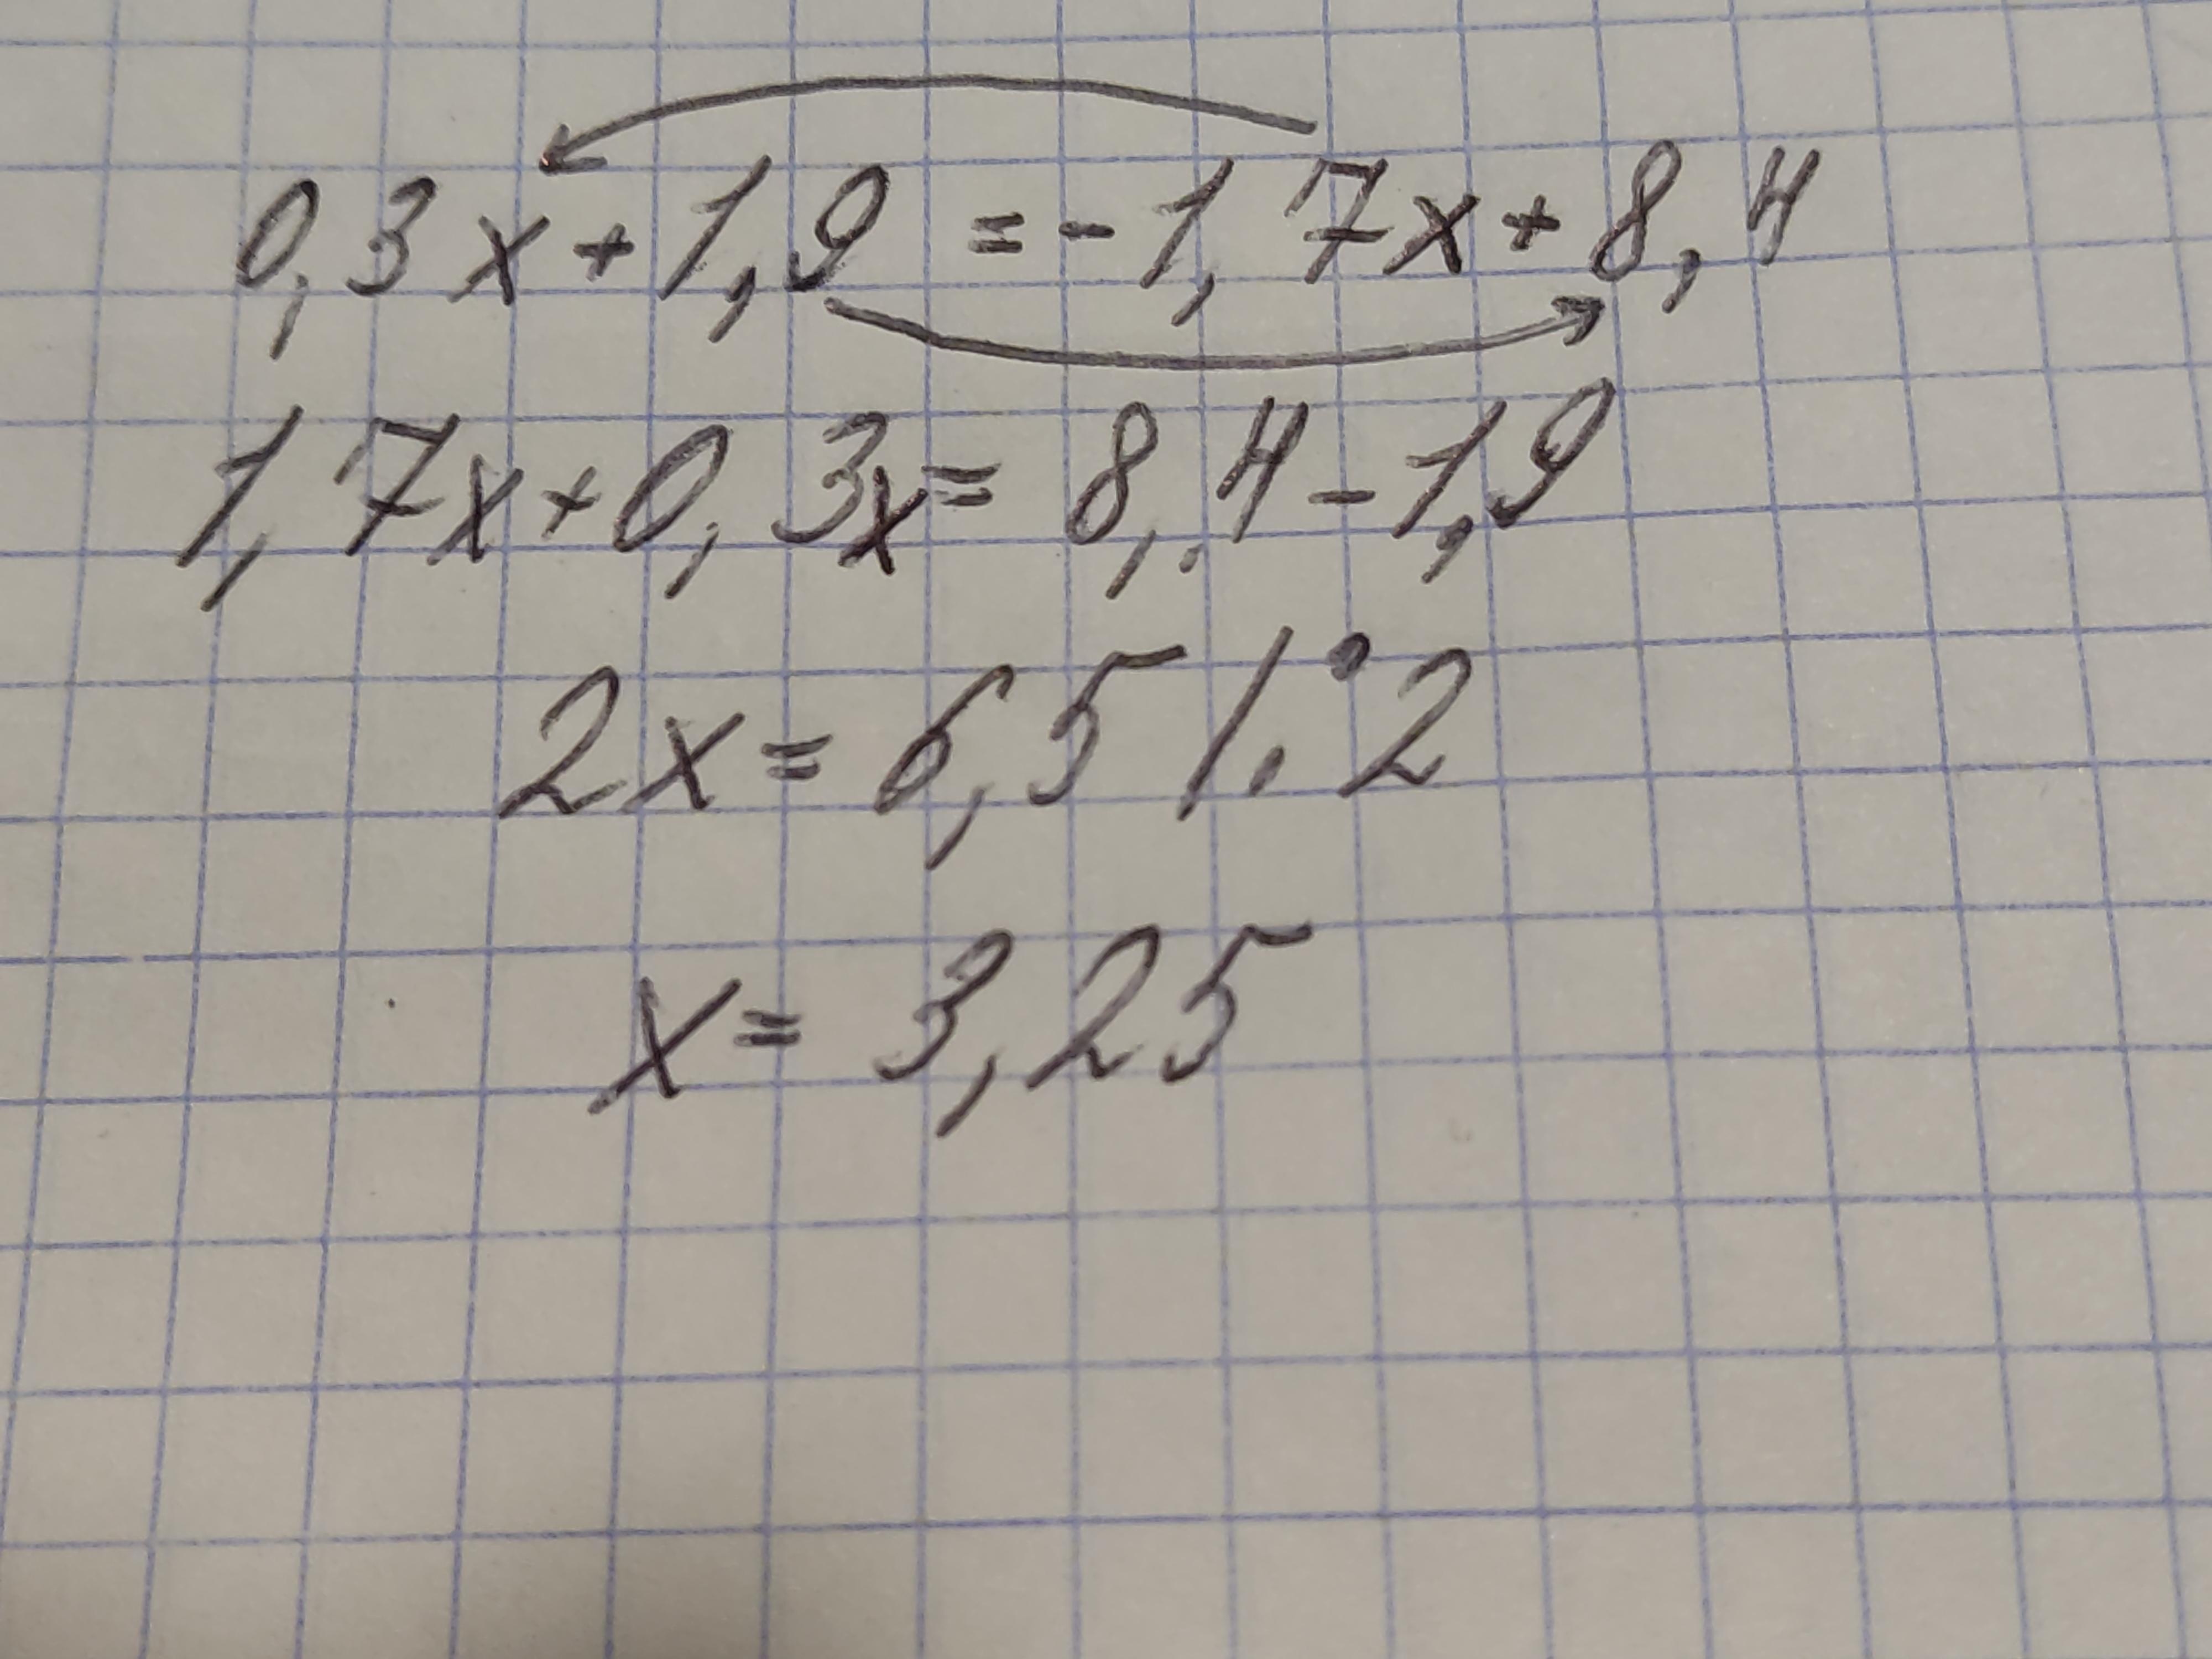 0,3x+1,9=-1,7x+8,4
1,7x+0,3x=8,4-1,9
2x=6,5/:2
x=3,25